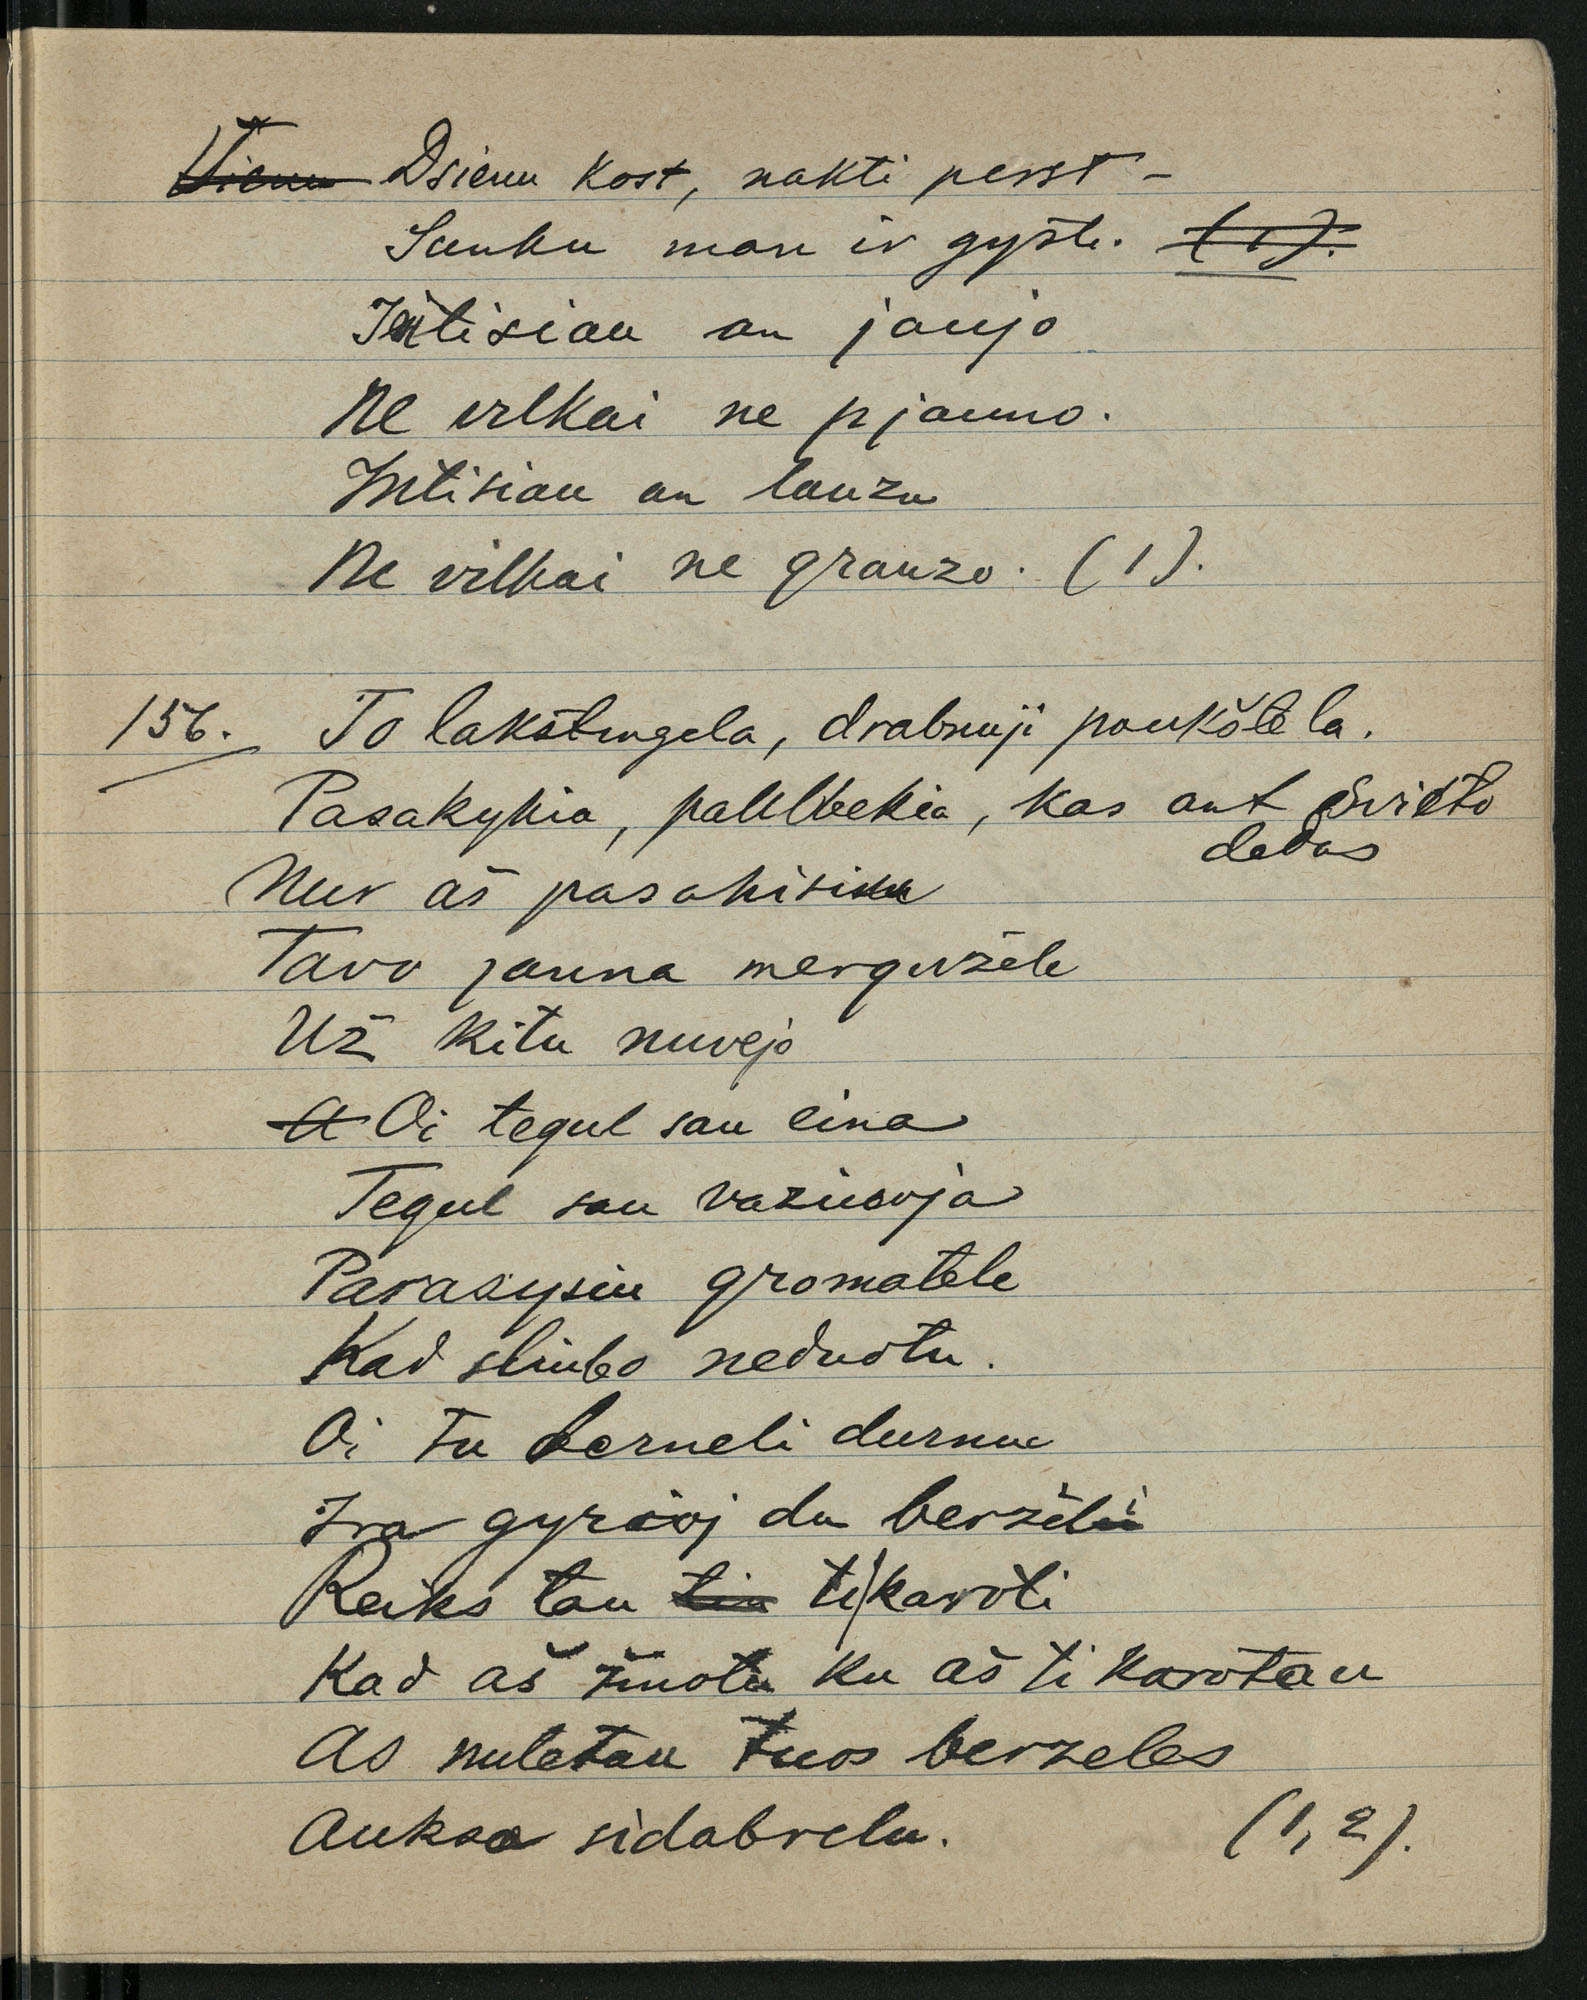 Dsienu kost, nakti perst –
Sunku man ir gyst.
Intisiau an jaujo
Ne vilkai ne pjauno.
Intisiau an lauzu
Ne vilkai ne grauzo. (1).
156. To lakštingela, drabnuji paukštela.
Pasakykia, kas ant svieto
dedas
Nur aš pasakisiu
Tavo jauna mergužele
Už kitu nuvejo
Oi tegul sau eina
Tegul sau vaziuoja
Parasysiu gromatele
Kad sliubo neduotu.
Oi tu berneli durnuu
Ira gyrioj du berželii
Reiks tau ti karoti
Kad aš žinotu ku aš ti karotau
As nuletau tuos berzeles
Aukso sidabrelu. (1, 2).